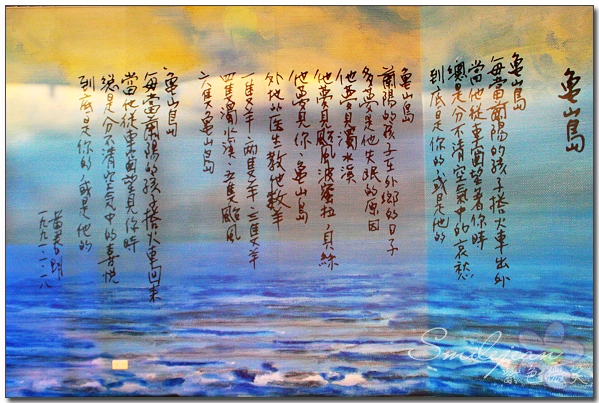 龜山島
龜山島
每當蘭陽的孩子搭火車出外
當他從車窗望著你時
總是分不清空氣中的哀愁
到底是你的,或是他的
龜山島
蘭陽的孩子在外鄉的日子
多夢是他失眠的原因
他夢見濁水溪
他夢見颱風波蜜拉、貝絲
他夢見你,龜山島
外地的醫生教他數羊
一隻羊、兩隻羊、三隻羊
四隻濁水溪、五隻颱風
六隻龜山島
龜山島
每當蘭陽的孩子搭火車回來
當他從車窗望見你時
總是分不清空氣中的喜悅
到底是你的,或是他的
黃春明
一九九二.一.八
Smilejean